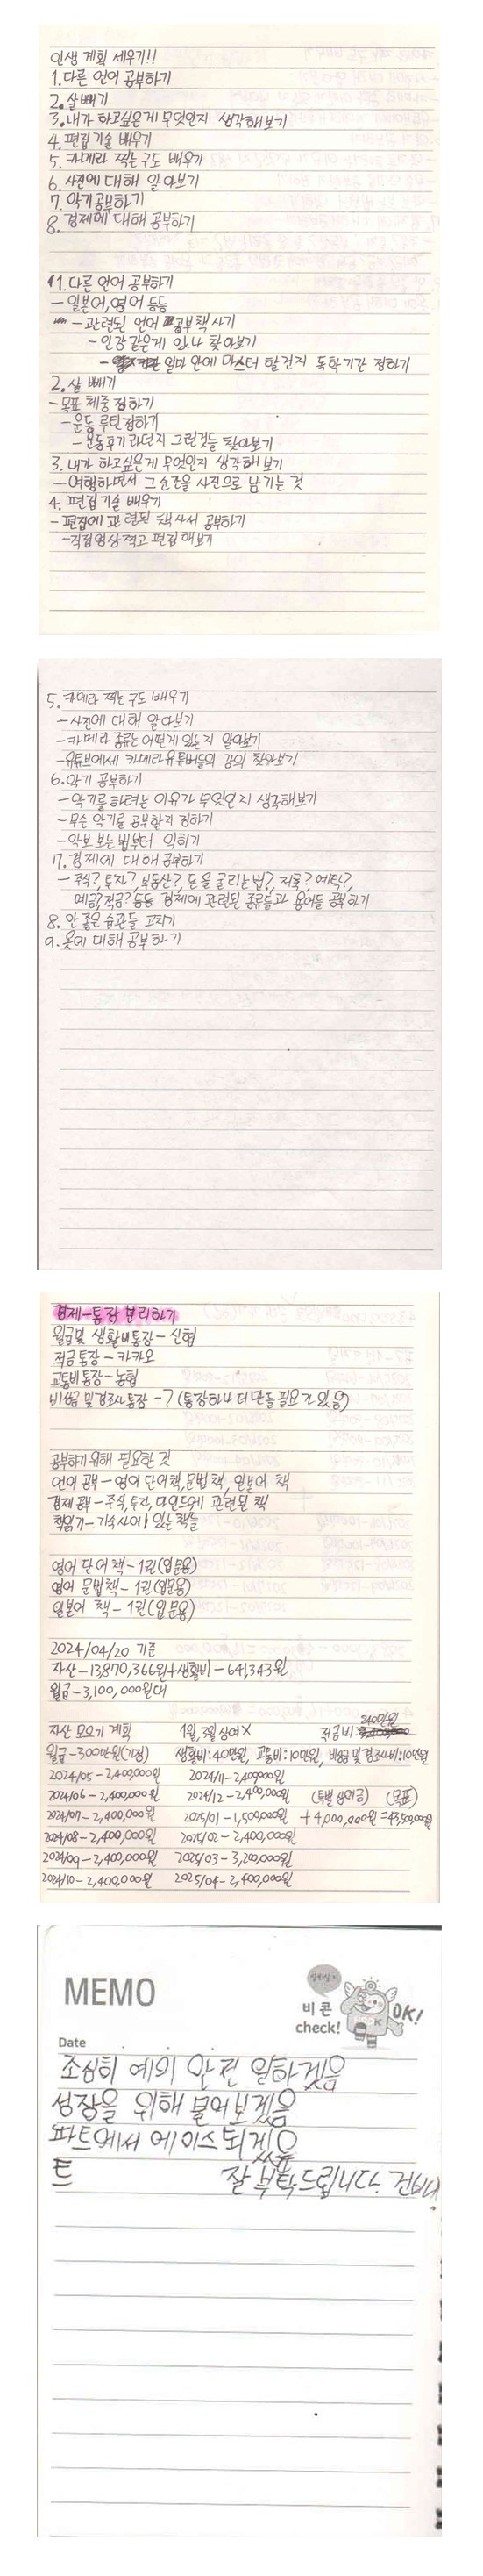 인생 계획 세우기!!
1. 다른 언어 공부하기
2. 살 빼기
3. 내가 하고싶은게 무엇인지 생각해보기
4. 편집기술 배우기
5. 카메라 찍는구도 배우기
6. 사진에 대해 알아보기
7. 악기공부하기
8. 경제에 대해 공부하기
1. 다른 언어 공부하기
- 일본어, 영어 등등
- 관련된 언어 공부 책 사기
- 인강 같은게 있나 찾아보기
- 얼마 안에 마스터 할건지 독학기간 정하기
2. 살 빼기
- 목표 체중 정하기
- 운동 루틴 정하기
- 운동후기라던지 그런것들 찾아보기
3. 내가 하고싶은게 무엇인지 생각해보기
- 여행하면서 그 순간을 사진으로 남기는 것
4. 편집기술 배우기
- 편집에 관련된 책 사서 공부하기
- 직접 영상 찍고 편집 해보기
5. 카메라 찍는 구도 배우기
- 사진에 대해 알아보기
- 카메라 종류는 어떤게 있는지 알아보기
- 유튜브에서 카메라 유튜버들의 강의 찾아보기
6. 악기 공부하기
- 악기를 하려는 이유가 무엇인지 생각해보기
- 무슨 악기를 공부할지 정하기
- 악보 보는 법부터 익히기
7. 경제에 대해 공부하기
- 주식? 투자? 부동산? 돈을 굴리는법? 저축? 예탁?
예금? 적금? 등등 경제에 관련된 종류들과 용어들 공부하기
8. 안 좋은 습관들 고치기
9. 옷에 대해 공부하기
경제-통장 분리하기
월급및 생활비통장 - 신협
적금통장 - 카카오
교통비통장 - 농협
비상금 및 경조사통장 - ? (통장하나 더 만들 필요가 있음)
공부하기 위해 필요한 것
언어 공부 - 영어 단어책, 문법책, 일본어 책
경제 공부 - 주식, 투자, 마인드에 관련된 책
책읽기 - 기숙사에 있는책들
영어 단어책 - 1권(입문용)
영어 문법책 - 1권(입문용)
일본어 책 - 1권(입문용)
2024/04/20 기준
자산 - 13,870,366원 + 생활비 - 641,343원
월급 - 3,100,000원대
자산 모으기 계획 1월, 3월 상여X 적금비: 240만원
월급 - 300만원(가정) 생활비: 40만원, 교통비: 10만원, 비상금 및 경조사비: 10만원
2024/05 - 2,400,000원 2024/11 - 2,400,000원
2024/06 - 2,400,000원 2024/12 - 2,400,000원 (특별상여금) (목표)
2024/07 - 2,400,000원 2025/01 - 1,500,000원 + 4,000,000원 = 43,500,000원
2024/08 - 2,400,000원 2025/02 - 2,400,000원
2024/09 - 2,400,000원 2025/03 - 3,200,000원
2024/10 - 2,400,000원 2025/04 - 2,400,000원
MEMO
비콘
check!
OK!
Date
조심히 예의 안전 일하겠음
성장을 위해 불어보겠음
파트에서 에이스 되겠음
트 잘 부탁드립니다.